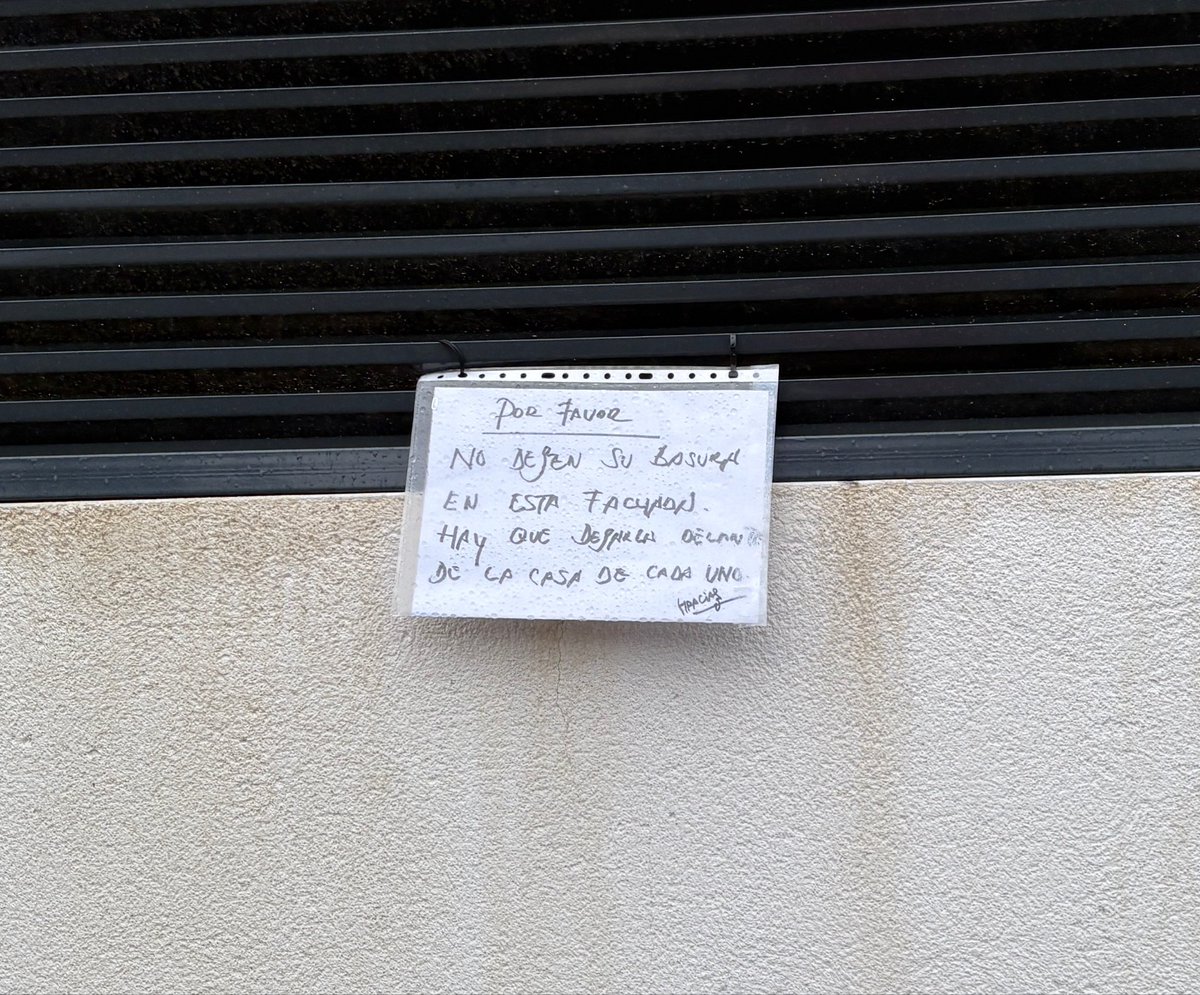 POR FAVOR
NO DEJEN SU BASURA
EN ESTA FACHADA.
HAY QUE DEJARLA DELANTE
DE LA CASA DE CADA UNO.
GRACIAS